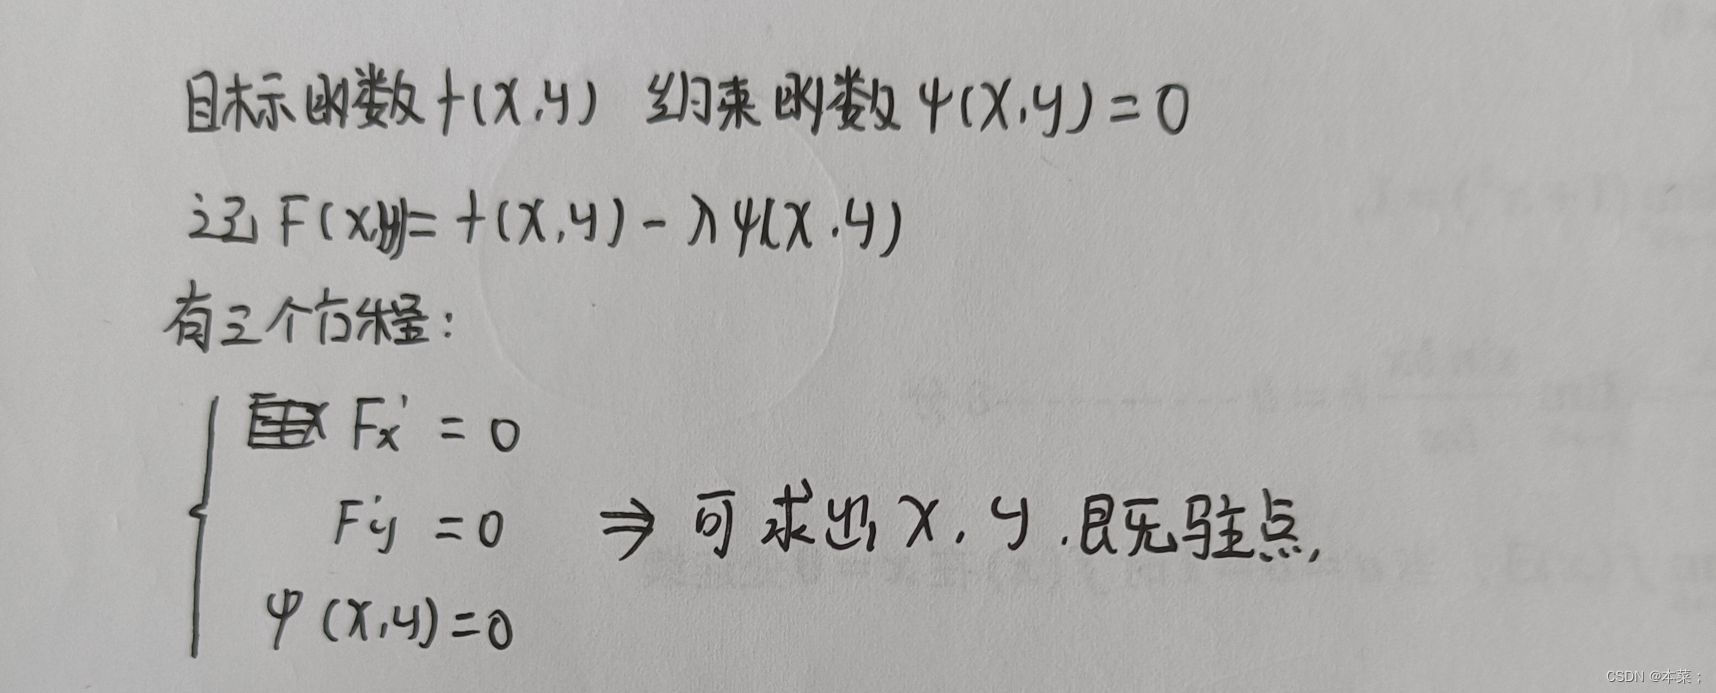 目标函数f(x,y) 约束函数ψ(x,y)=0
记F(x,y)=f(x,y)-λψ(x,y)
有三个方程:
Fx'=0
Fy'=0 ⇒ 可求出x,y,既无驻点,
φ(x,y)=0
CSDN @本菜;